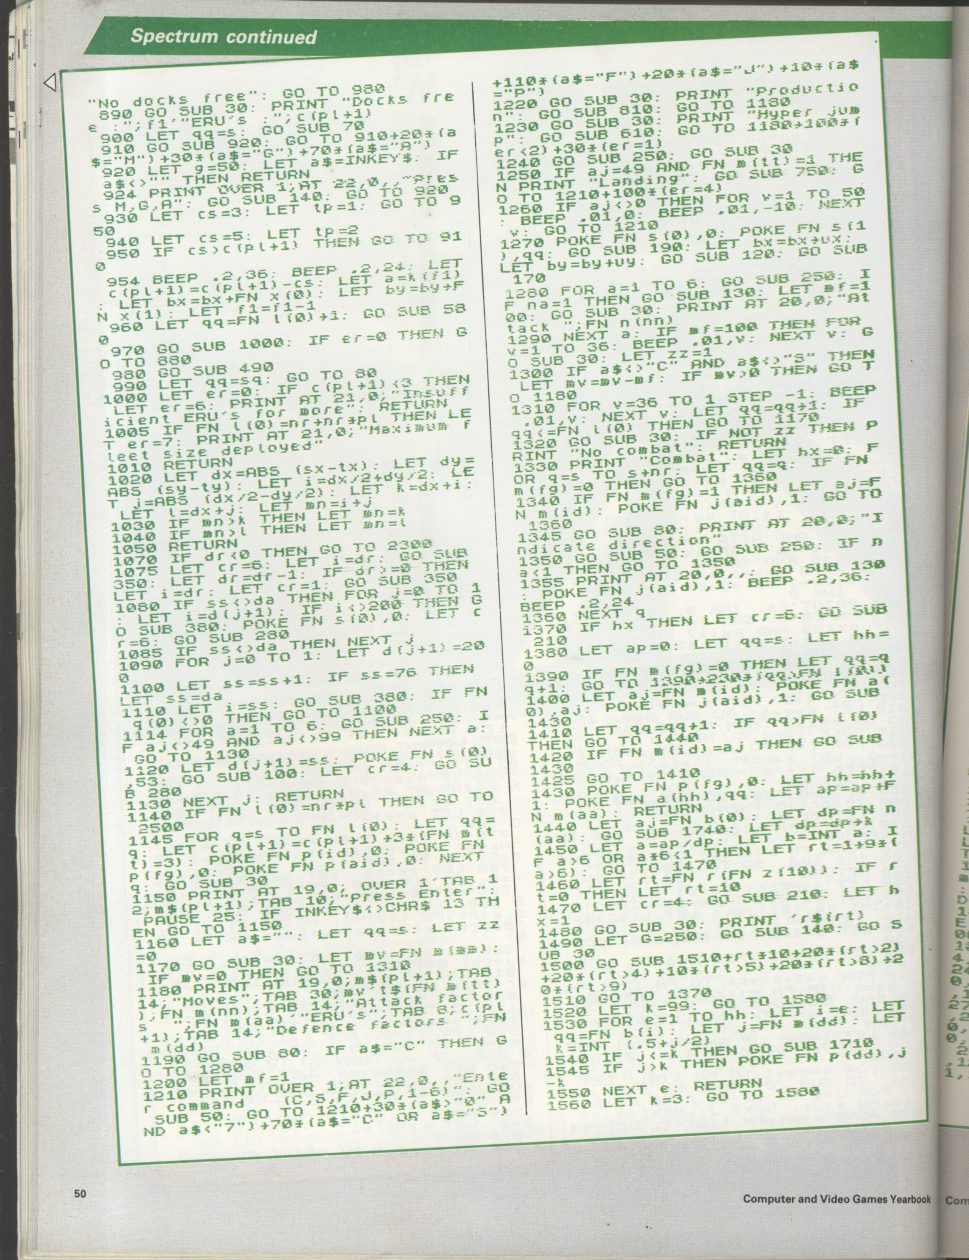 Spectrum continued
"No docks free": GO TO 980
890 GO SUB 30: PRINT "Docks fre
e :";f1'"ERU's :";c(pl+1)
900 LET qq=s: GO SUB 70
910 GO SUB 920: GO TO 910+20*(a
$="M")+30*(a$="G")+70*(a$="A")
920 LET g=50: LET a$=INKEY$: IF
a$<>"" THEN RETURN
924 PRINT OVER 1;AT 22,0,,"Pres
s M,G,A": GO SUB 140: GO TO 920
930 LET cs=3: LET tp=1: GO TO 9
50
940 LET cs=5: LET tp=2
950 IF cs>c(pl+1) THEN GO TO 91
0
954 BEEP .2,36: BEEP .2,24: LET
c(pl+1)=c(pl+1)-cs: LET a=k(f1)
: LET bx=bx+FN x(0): LET by=by+F
N x(1): LET f1=f1-1
960 LET qq=FN l(0)+1: GO SUB 58
0
970 GO SUB 1000: IF er=0 THEN G
O TO 880
980 GO SUB 490
990 LET qq=sq: GO TO 80
1000 LET er=0: IF c(pl+1)<3 THEN
LET er=6: PRINT AT 21,0;"Insuff
icient ERU's for more": RETURN
1005 IF FN l(0)=nr+nr*pl THEN LE
T er=7: PRINT AT 21,0;"Maximum f
leet size deployed"
1010 RETURN
1020 LET dx=ABS (sx-tx): LET dy=
ABS (sy-ty): LET i=dx/2+dy/2: LE
T j=ABS (dx/2-dy/2): LET k=dx+i:
LET l=dx+j: LET mn=i+j
1030 IF mn>k THEN LET mn=k
1040 IF mn>l THEN LET mn=l
1050 RETURN
1070 IF dr<0 THEN GO TO 2300
1075 LET cr=6: LET i=dr: GO SUB
350: LET dr=dr-1: IF dr>=0 THEN
LET i=dr: LET cr=1: GO SUB 350
1080 IF ss<>da THEN FOR j=0 TO 1
: LET i=d(j+1): IF i<>200 THEN G
O SUB 380: POKE FN s(0),0: LET c
r=6: GO SUB 280
1085 IF ss<>da THEN NEXT j
1090 FOR j=0 TO 1: LET d(j+1)=20
0
1100 LET ss=ss+1: IF ss=76 THEN
LET ss=da
1110 LET i=ss: GO SUB 380: IF FN
q(0)<>0 THEN GO TO 1100
1114 FOR a=1 TO 6: GO SUB 250: I
F aj<>49 AND aj<>99 THEN NEXT a:
GO TO 1130
1120 LET d(j+1)=ss: POKE FN s(0)
,53: GO SUB 100: LET cr=4: GO SU
B 280
1130 NEXT j: RETURN
1140 IF FN l(0)=nr*pl THEN GO TO
2500
1145 FOR q=s TO FN l(0): LET qq=
q: LET c(pl+1)=c(pl+1)+3*(FN m(t
t)=3): POKE FN p(id),0: POKE FN
p(fg),0: POKE FN p(aid),0: NEXT
q: GO SUB 30
1150 PRINT AT 19,0; OVER 1'TAB 1
2;m$(pl+1);TAB 10;"Press Enter":
PAUSE 25: IF INKEY$<>CHR$ 13 TH
EN GO TO 1150
1160 LET a$="": LET qq=s: LET zz
=0
1170 GO SUB 30: LET mv=FN m(mm):
IF mv=0 THEN GO TO 1310
1180 PRINT AT 19,0;m$(pl+1);TAB
14;"Moves";TAB 30;mv't$(FN m(tt)
);FN m(nn);TAB 14;"Attack factor
s ";FN m(aa)'"ERU's";TAB 8;c(pl
+1);TAB 14;"Defence factors ";FN
m(dd)
1190 GO SUB 80: IF a$="C" THEN G
O TO 1280
1200 LET mf=1
1210 PRINT OVER 1;AT 22,0,,"Ente
r command (C,S,F,J,P,1-6)": GO
SUB 50: GO TO 1210+30*(a$>"0" A
ND a$<"7")+70*(a$="C" OR a$="S")
+110*(a$="F")+20*(a$="J")+10*(a$
="P")
1220 GO SUB 30: PRINT "Productio
n": GO SUB 810: GO TO 1180
1230 GO SUB 30: PRINT "Hyper jum
p": GO SUB 610: GO TO 1180+100*(
er<2)+30*(er=1)
1240 GO SUB 250: GO SUB 30
1250 IF aj=49 AND FN m(tt)=1 THE
N PRINT "Landing": GO SUB 750: G
O TO 1210+100*(er=4)
1260 IF aj<>0 THEN FOR v=1 TO 50
: BEEP .01,0: BEEP .01,-10: NEXT
v: GO TO 1210
1270 POKE FN s(0),0: POKE FN s(1
),qq: GO SUB 190: LET bx=bx+ux:
LET by=by+uy: GO SUB 120: GO SUB
170
1280 FOR a=1 TO 6: GO SUB 250: I
F na=1 THEN GO SUB 130: LET mf=1
00: GO SUB 30: PRINT AT 20,0;"At
tack ";FN n(nn)
1290 NEXT a: IF mf=100 THEN FOR
v=1 TO 36: BEEP .01,v: NEXT v: G
O SUB 30: LET zz=1
1300 IF a$<>"C" AND a$<>"S" THEN
LET mv=mv-mf: IF mv>0 THEN GO T
O 1180
1310 FOR v=36 TO 1 STEP -1: BEEP
.01,v: NEXT v: LET qq=qq+1: IF
qq<=FN l(0) THEN GO TO 1170
1320 GO SUB 30: IF NOT zz THEN P
RINT "No combat": RETURN
1330 PRINT "Combat": LET hx=0: F
OR q=s TO s+nr: LET qq=q: IF FN
m(fg)=0 THEN GO TO 1360
1340 IF FN m(fg)=1 THEN LET aj=F
N m(id): POKE FN j(aid),1: GO TO
1360
1345 GO SUB 80: PRINT AT 20,0;"I
ndicate direction"
1350 GO SUB 50: GO SUB 250: IF n
a<1 THEN GO TO 1350
1355 PRINT AT 20,0,,: GO SUB 130
: POKE FN j(aid),1: BEEP .2,36:
BEEP .2,24
1360 NEXT q
1370 IF hx THEN LET cr=6: GO SUB
210
1380 LET ap=0: LET qq=s: LET hh=
0
1390 IF FN m(fg)=0 THEN LET qq=q
q+1: GO TO 1390+230*(qq>FN l(0))
1400 LET aj=FN m(id): POKE FN a(
0),aj: POKE FN j(aid),1: GO SUB
1430
1410 LET qq=qq+1: IF qq>FN l(0)
THEN GO TO 1440
1420 IF FN m(id)=aj THEN GO SUB
1430
1425 GO TO 1410
1430 POKE FN p(fg),0: LET hh=hh+
1: POKE FN a(hh),qq: LET ap=ap+F
N m(aa): RETURN
1440 LET aj=FN b(0): LET dp=FN n
(aa): GO SUB 1740: LET dp=dp+k
1450 LET a=ap/dp: LET b=INT a: I
F a>6 OR a*6<1 THEN LET rt=1+9*(
a>6): GO TO 1470
1460 LET rt=FN r(FN z(10)): IF r
t=0 THEN LET rt=10
1470 LET cr=4: GO SUB 210: LET h
x=1
1480 GO SUB 30: PRINT 'r$(rt)
1490 LET G=250: GO SUB 140: GO S
UB 30
1500 GO SUB 1510+rt*10+20*(rt>2)
+20*(rt>4)+10*(rt>5)+20*(rt>8)+2
0*(rt>9)
1510 GO TO 1370
1520 LET k=99: GO TO 1580
1530 FOR e=1 TO hh: LET i=e: LET
qq=FN b(i): LET j=FN m(dd): LET
k=INT (.5+j/2)
1540 IF j<=k THEN GO SUB 1710
1545 IF j>k THEN POKE FN p(dd),j
-k
1550 NEXT e: RETURN
1560 LET k=3: GO TO 1580
50
Computer and Video Games Yearbook
Com